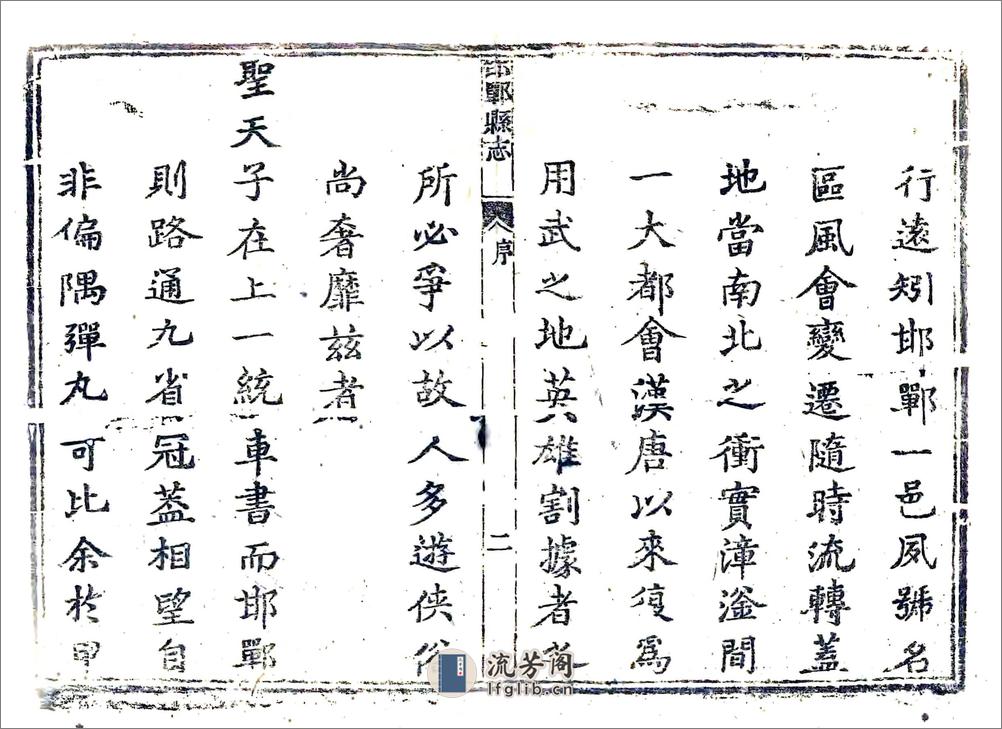 行遠矧邯鄲一邑夙號名
區風會變遷隨時流轉蓋
地當南北之衝實漳滏間
一大都會漢唐以來復爲
用武之地英雄割據者
邯鄲縣志
序
二
所必爭以故人多遊俠俗
尚奢靡茲者
聖天子在上一統車書而邯鄲
則路通九省冠蓋相望自
非偏隅彈丸可比余於甲
流芳阁
lfglib.cn